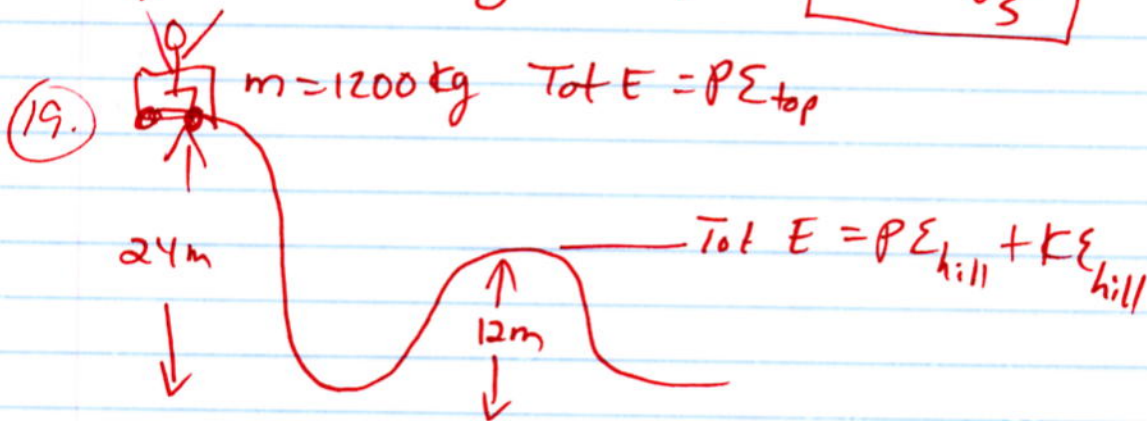 s
19. m = 1200 kg Tot E = PE top
24m
Tot E = PE hill + KE hill
12m